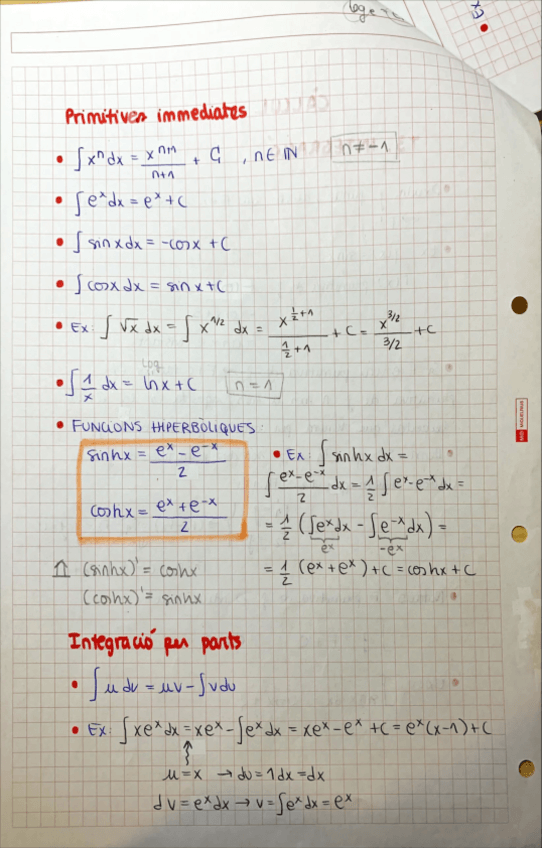 log e
Primitives immediates
• ∫xⁿdx = xⁿ⁺¹/n+1 + C , n∈ℕ n≠-1
• ∫eˣdx = eˣ+C
• ∫sinxdx = -cosx +C
• ∫cosxdx = sinx+C
• Ex: ∫√x dx = ∫x^1/2 dx = x^(1/2+1)/(1/2+1) + C = x^3/2/(3/2) + C
log
• ∫1/x dx = lnx+C n=1
• FUNCIONS HIPERBÒLIQUES:
sinhx = (eˣ-e⁻ˣ)/2
coshx = (eˣ+e⁻ˣ)/2
⇑ (sinhx)' = coshx
(coshx)' = sinhx
• Ex: ∫sinhxdx =
∫(eˣ-e⁻ˣ)/2 dx = 1/2 ∫eˣ-e⁻ˣdx =
= 1/2 (∫eˣdx - ∫e⁻ˣdx) =
eˣ -e⁻ˣ
= 1/2 (eˣ+eˣ)+C = coshx+C
Integració per parts
• ∫u dv = uv-∫vdu
• Ex: ∫xeˣdx = xeˣ-∫eˣdx = xeˣ-eˣ +C = eˣ(x-1)+C
u=x → du=1dx=dx
dv=eˣdx → v=∫eˣdx=eˣ
MIQUELRIUS